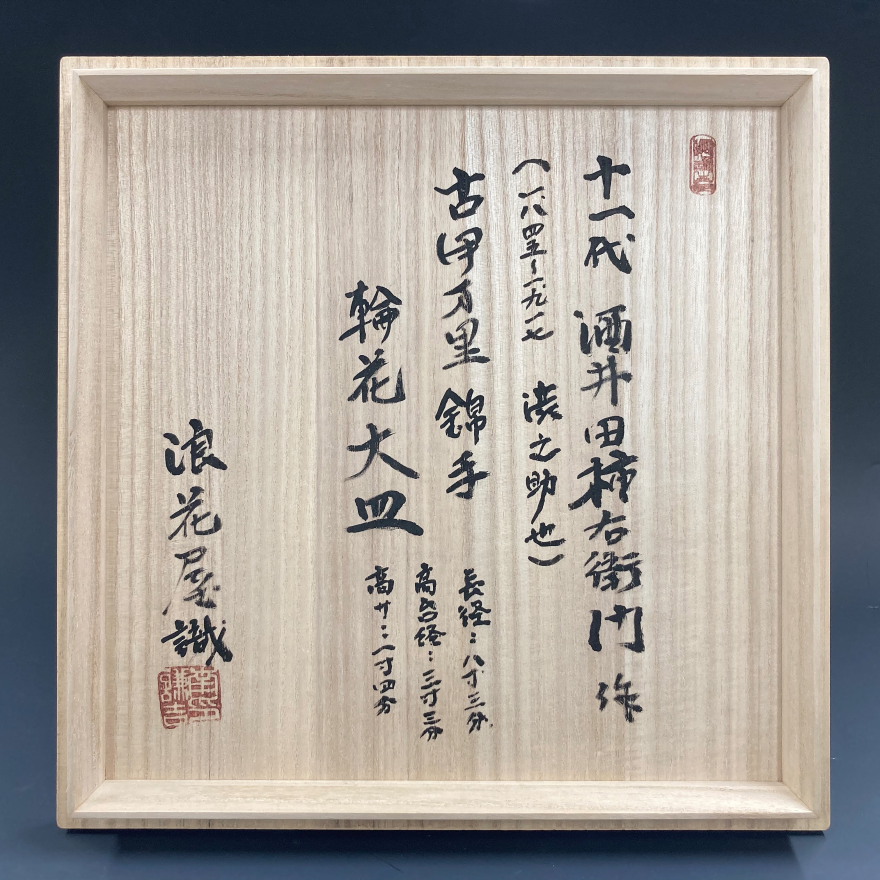 十一代 酒井田柿右衛門 作
(一八四五〜一九一七 渋之助也)
古伊万里 錦手
輪花大皿
長径:八寸三分
高台径:三寸三分
高サ:一寸四分
浪花屋識